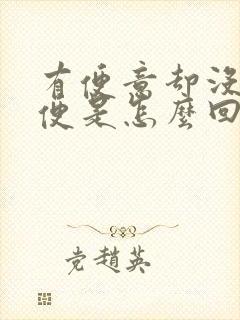 有便意却没
便是怎麼回
党趙英